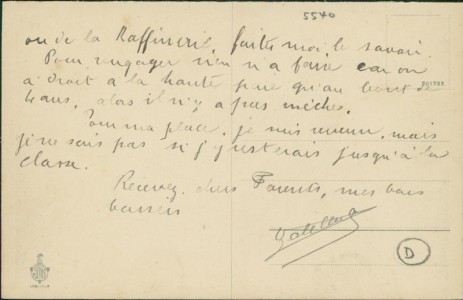 5540
ou de la Raffinerie, faites moi le savoir.
Pour rengager rien n'a faire car on
a droit à la haute paie qu'au bout de
4 ans, alors il n'y a pas mèche.
Pour ma place, je suis revenu, mais
je ne sais pas si j'y resterais jusqu'à la
classe.
Recevez, chers Parents, mes bons
baisers
D